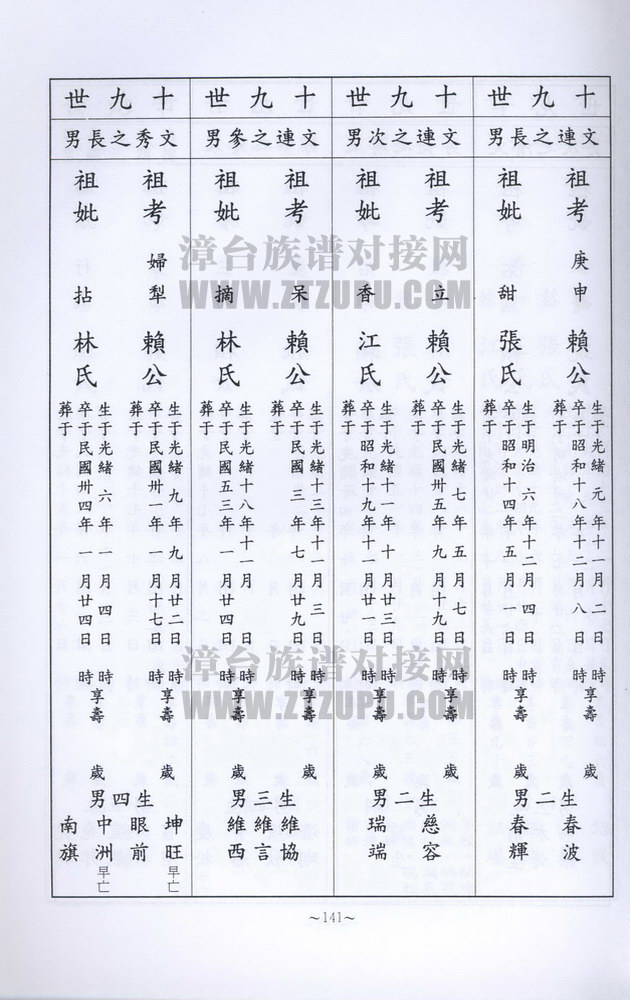 十九世
文連之長男
祖考 庚申 賴公
生于光緒元年十一月二日 時享壽 歲
卒于昭和十八年十二月八日
祖妣 甜 張氏
生于明治六年十二月四日 時享壽
卒于昭和十四年五月一日
葬于
生二男
春波
春輝
十九世
文連之次男
祖考 立 賴公
生于光緒七年五月七日 時享壽 歲
卒于民國卅五年九月十九日
葬于
祖妣 香 江氏
生于光緒十一年十月廿三日 時享壽
卒于昭和十九年十一月廿一日
葬于
生二男
慈容
瑞瑞
十九世
文連之參男
祖考 呆 賴公
生于光緒十三年十一月三日 時享壽 歲
卒于民國三年七月廿九日
葬于
祖妣 摘 林氏
生于光緒十八年十一月 時享壽
卒于民國五三年一月廿四日
葬于
生三男
維協
維言
維西
十九世
文秀之長男
祖考 婦犁 賴公
生于光緒九年九月廿二日 時享壽 歲
卒于民國卅一年一月十七日
葬于
祖妣 拈 林氏
生于光緒六年一月四日 時
卒于民國卅四年一月廿四日 時享壽
葬于
生四男
坤旺 早亡
眼前
中洲 早亡
南旗
~141~
漳台族谱对接网
WWW.ZTZUPU.COM
漳台族谱对接网
WWW.ZTZUPU.COM